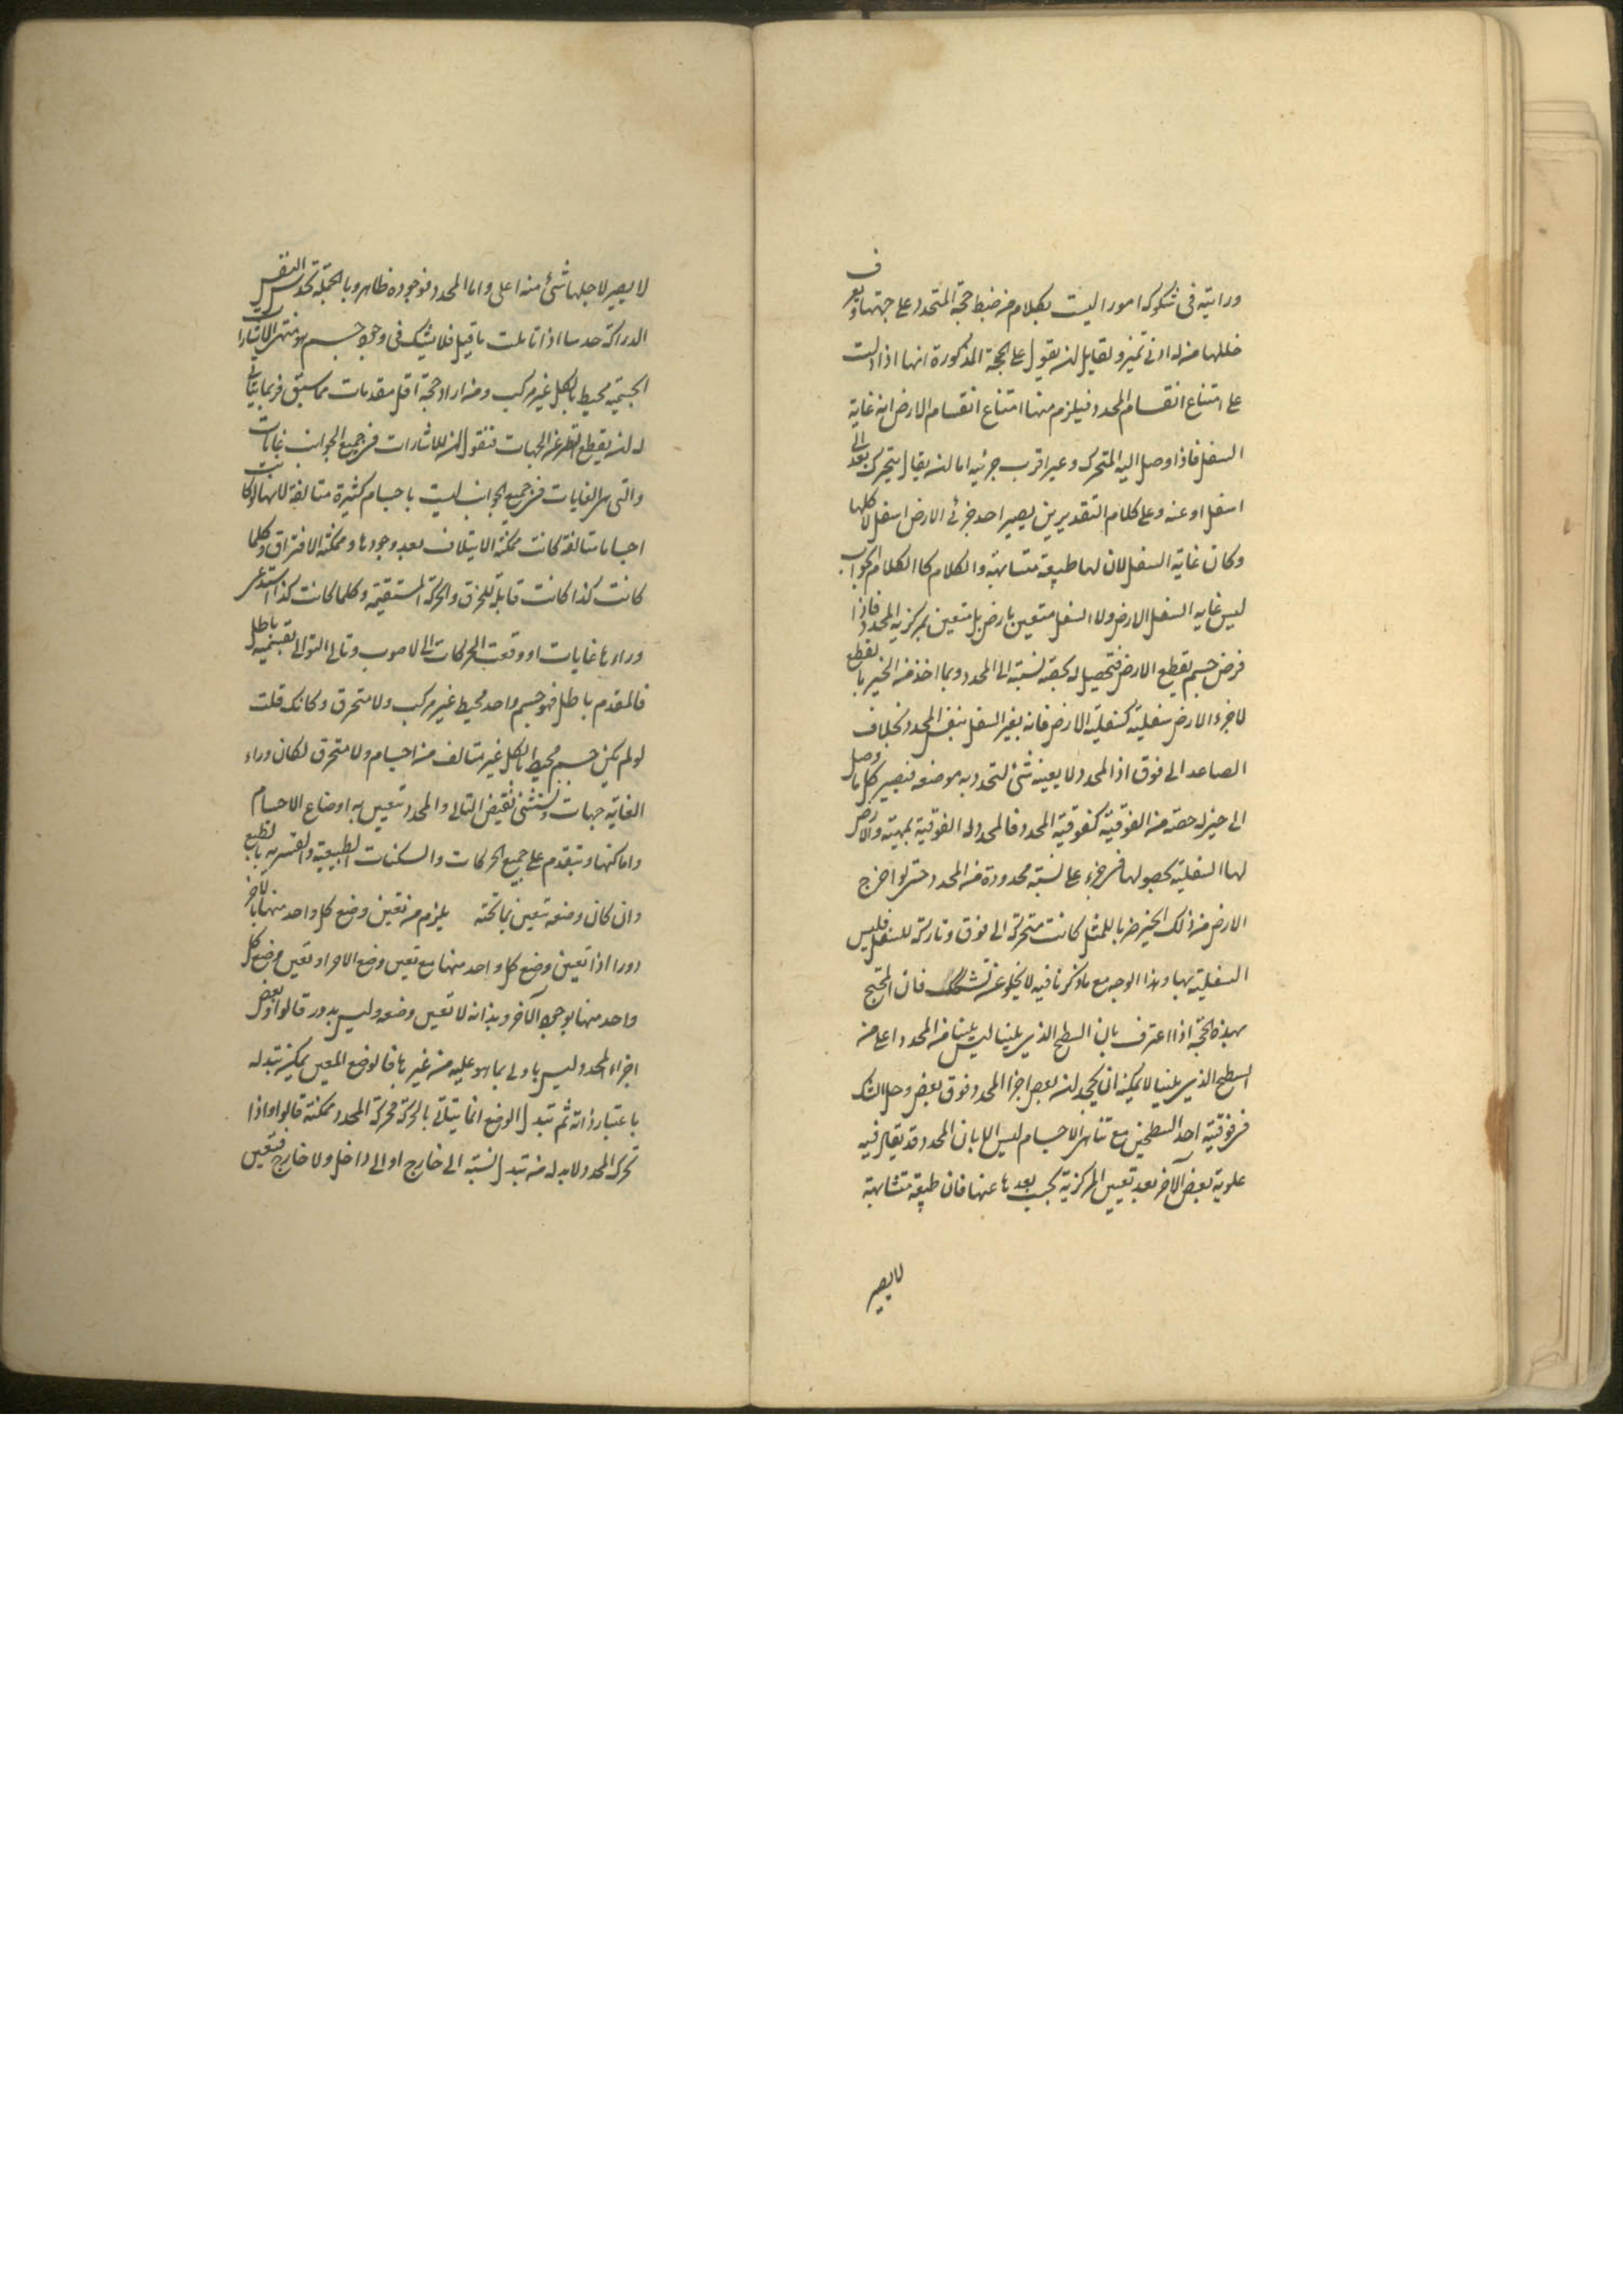 ورايته فى شكوكه امورا ليست بكلام من ضبط حجة المتحدد على جهتها ويعرف
خللها من له ادنى تميز ولقايل ان يقول على الحجة المذكورة انها اذا دلت
على امتناع انقسام المحدد فيلزم منها امتناع انقسام الارض اذ غاية
السفل فاذا وصل اليه المتحرك وعبر اقرب جزئيه اما ان يقال يتحرك بعد الى
اسفل او عنه وعلى كلام التقديرين يصير احد جزئى الارض اسفل لا كلها
وكان غاية السفل لان لها طبيعة متشابهة والكلام كا الكلام الجواب
ليس غايه السفل الارض ولا السفل متعين بارض بل متعين بمركزية المحدد فاذا
فرض جسم يقطع الارض فتحصيل له بحصة نسبة الى المحدد وبما اخذ من الحيز ما يقطع
لا جزء الارض سفلية كسفلية الارض فانه يغير السفل بنفس المحدد بخلاف
الصاعد الى فوق اذ المحدد لا يعينه شئ لتحدد به موضعه فيصير كل ما وصل
الى حيز له حصة من الفوقية كفوقية المحدد فالمحدد له الفوقية بمهيته والارض
لها السفلية بحصولها فى جزء على نسبة محدودة من المحدد حتى لو اخرج
الارض من ذلك الحيز ضربا للمثل كانت متحركة الى فوق وتاركة للسفل فليس
السفلية بها وهذا الوجه مع ما ذكرنا فيه لا يخلو عن تشكك فان المحتج
بهذه الحجة اذا اعترف بان السطح الذى يلينا ليس يلينا من المحدد اعلى منه
السطح الذى يلينا لا يمكنه ان يجحد ان بعض اجزا المحدد فوق بعض وحل الشك
فى فوقية احد السطحين مع تناهى الاجسام ليس الا بان المحدد قد يقال فيه
علوية بعض الآخر بعد تعيين المركزية بحسب بعدها عنها فان طبيعة متشابهة
لا يصير
لا يصير لاجلها شئ منه اعلى واما المحدد فوجوده ظاهر وبالجملة تحدس النفس
الدراكة حدسا اذا تاملت ما قيل فلا يشك فى وجود جسم هو منتهى الاشارات
الجسمية محيط بالكل غير مركب ومن اراد حجة اقل مقدمات مما سبق فربما يتأتى
له ان يقطع النظر عن الجهات فنقول ان للاشارات فى جميع الجوانب غايات
والتى هى الغايات فى جميع الجوانب ليست باجسام كثيرة متالفة لانها لو كانت
اجساما متالفة كانت ممكنة الايتلاف بعد وجودها وممكنة الافتراق وكلما
كانت كذا كانت قابلة للخرق والحركة المستقيمة وكلما كانت كذا استدعى
وراءها غايات او وقعت الحركات الى لا صوب وتالى التوالى بقسميه باطل
فالمقدم باطل فهو جسم واحد محيط غير مركب ولا متخرق وكانك قلت
لو لم يكن جسم محيط بالكل غير متالف من اجسام ولا متخرق لكان وراء
الغاية جهات ونستثنى نقيض التالى والمحدد تتعين به اوضاع الاجسام
واماكنها ويتقدم على جميع الحركات والسكنات الطبيعية والقسرية بالطبع
وان كان وضعه تتعين بما تحته يلزم من تعين وضع كل واحد منهما بالاخر
دورا اذا تعين وضع كل واحد منهما مع تعين وضع الاخر او تعين وضع كل
واحد منهما بوجود الآخر وبذاته لا تعين وضعه وليس بدور قالوا بعض
اجزاء المحدد ليس باولى بما هو عليه من غيرها فالوضع المعين يمكن تبدله
باعتبار ذاته ثم تبدل الوضع انما يتأتى بالحركة فحركة المحدد ممكنة قالوا واذا
تحرك المحدد لا بد له من تبدل نسبة الى خارج او الى داخل ولا خارج فتعين